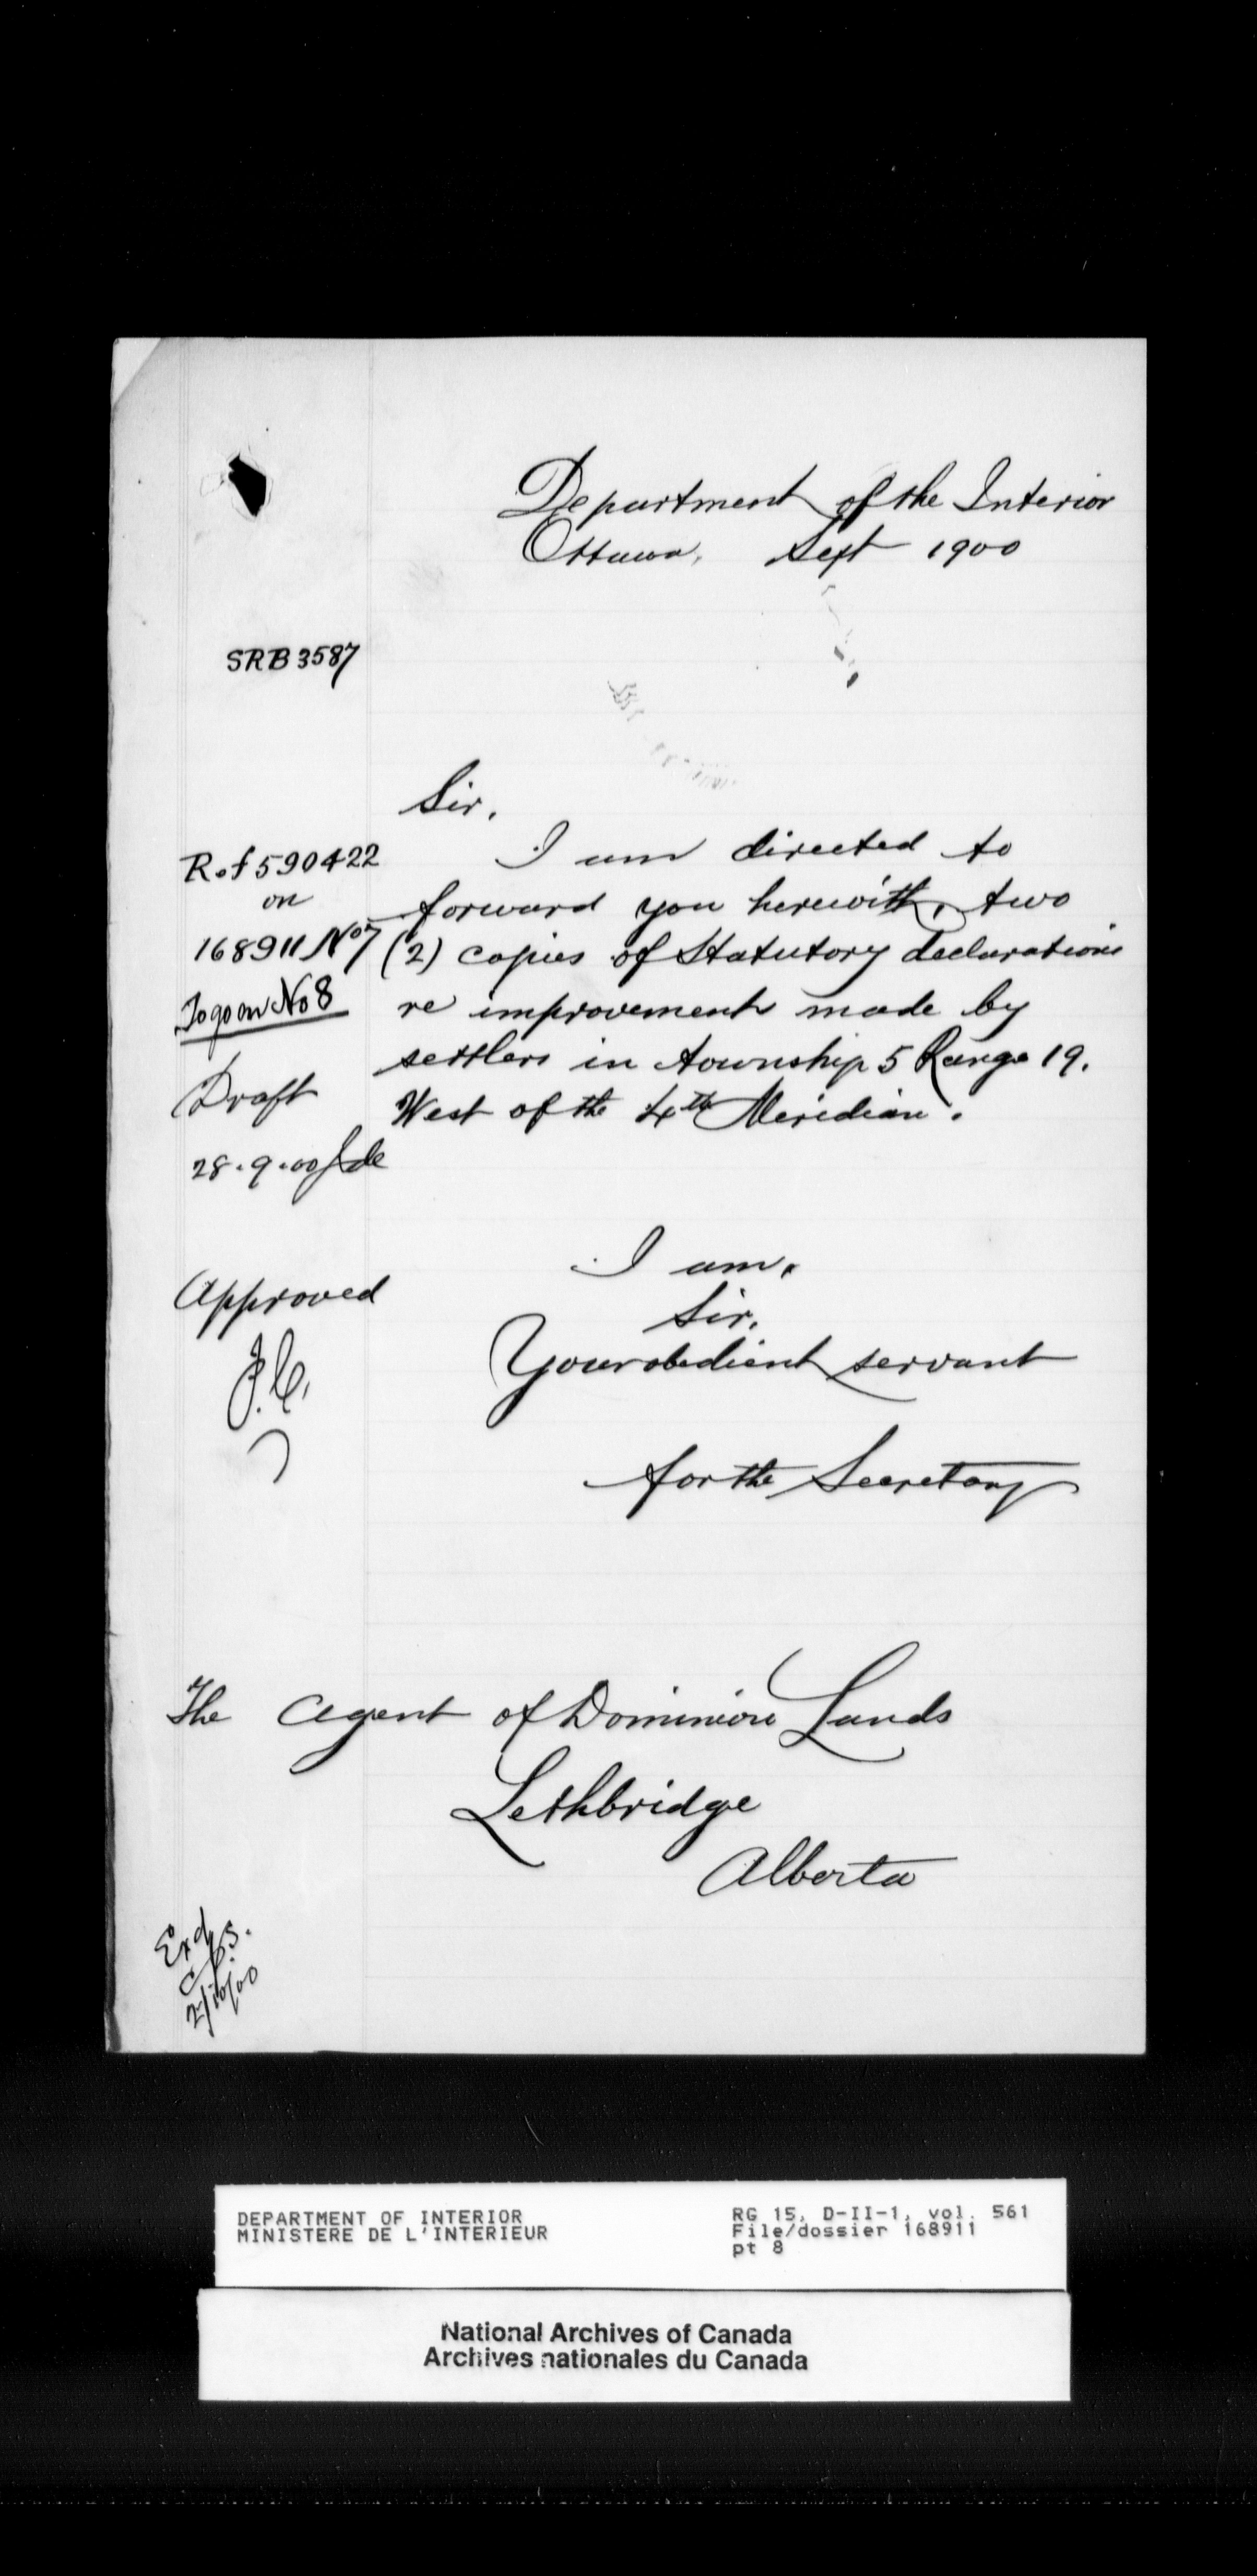 Department of the Interior
Ottawa, Sept 1900
SRB 3587
Sir,
Ref 590422
on
168911 No 7
To go on No 8
Draft
28.9.00
I am directed to
forward you herewith, two
(2) copies of Statutory declarations
re improvements made by
settlers in township 5 Range 19.
West of the 4th Meridian.
Approved
J.C.
I am,
Sir,
Your obedient servant
for the Secretary
The Agent of Dominion Lands
Lethbridge
Alberta
Exd
2/10/00
DEPARTMENT OF INTERIOR
MINISTERE DE L'INTERIEUR
RG 15, D-II-1, vol. 561
File/dossier 168911
pt 8
National Archives of Canada
Archives nationales du Canada